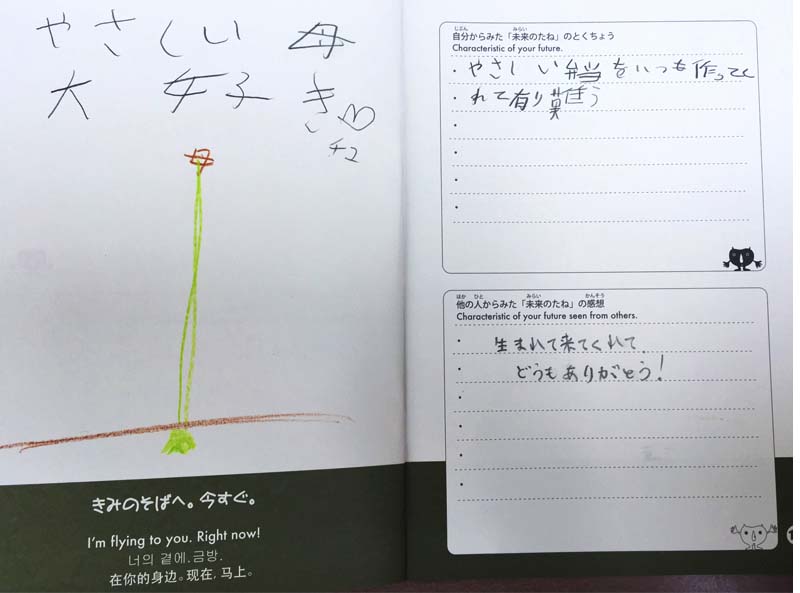 やさしい 母
大好き♡
きみのそばへ。今すぐ。
I'm flying to you. Right now!
너의 곁에. 금방.
在你的身边。现在，马上。
じぶん みらい
自分からみた「未来のたね」のとくちょう
Characteristic of your future.
・やさしい弁当をいつも作ってく
・れて有り難う
・
・
・
・
ほか ひと みらい かんそう
他の人からみた「未来のたね」の感想
Characteristic of your future seen from others.
・生まれて来てくれて
・どうもありがとう！
・
・
・
・